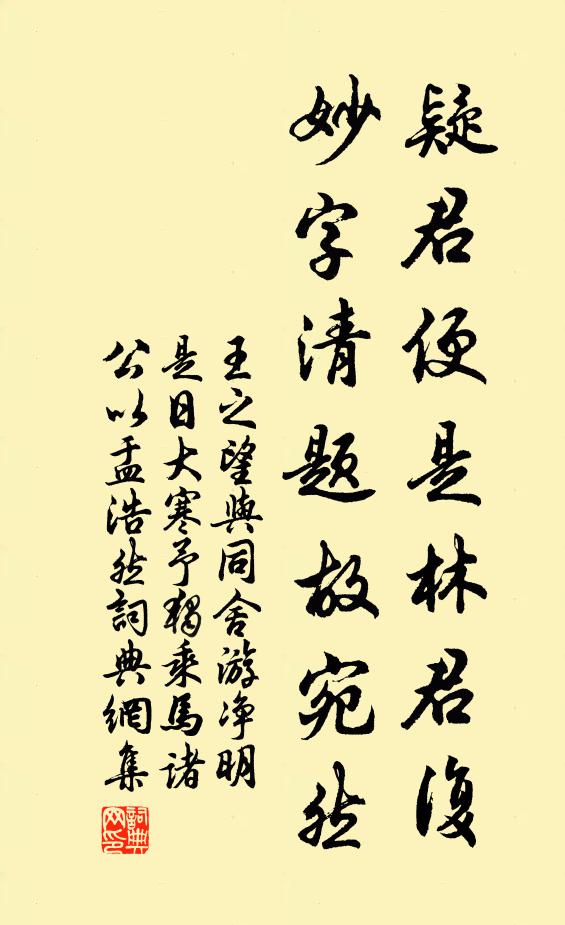 疑君便是林君復
妙字清題故宛然
王之望與同舍游净明
是日大寒予獨乘馬諸
公以孟浩然詞典網集
詞典網印